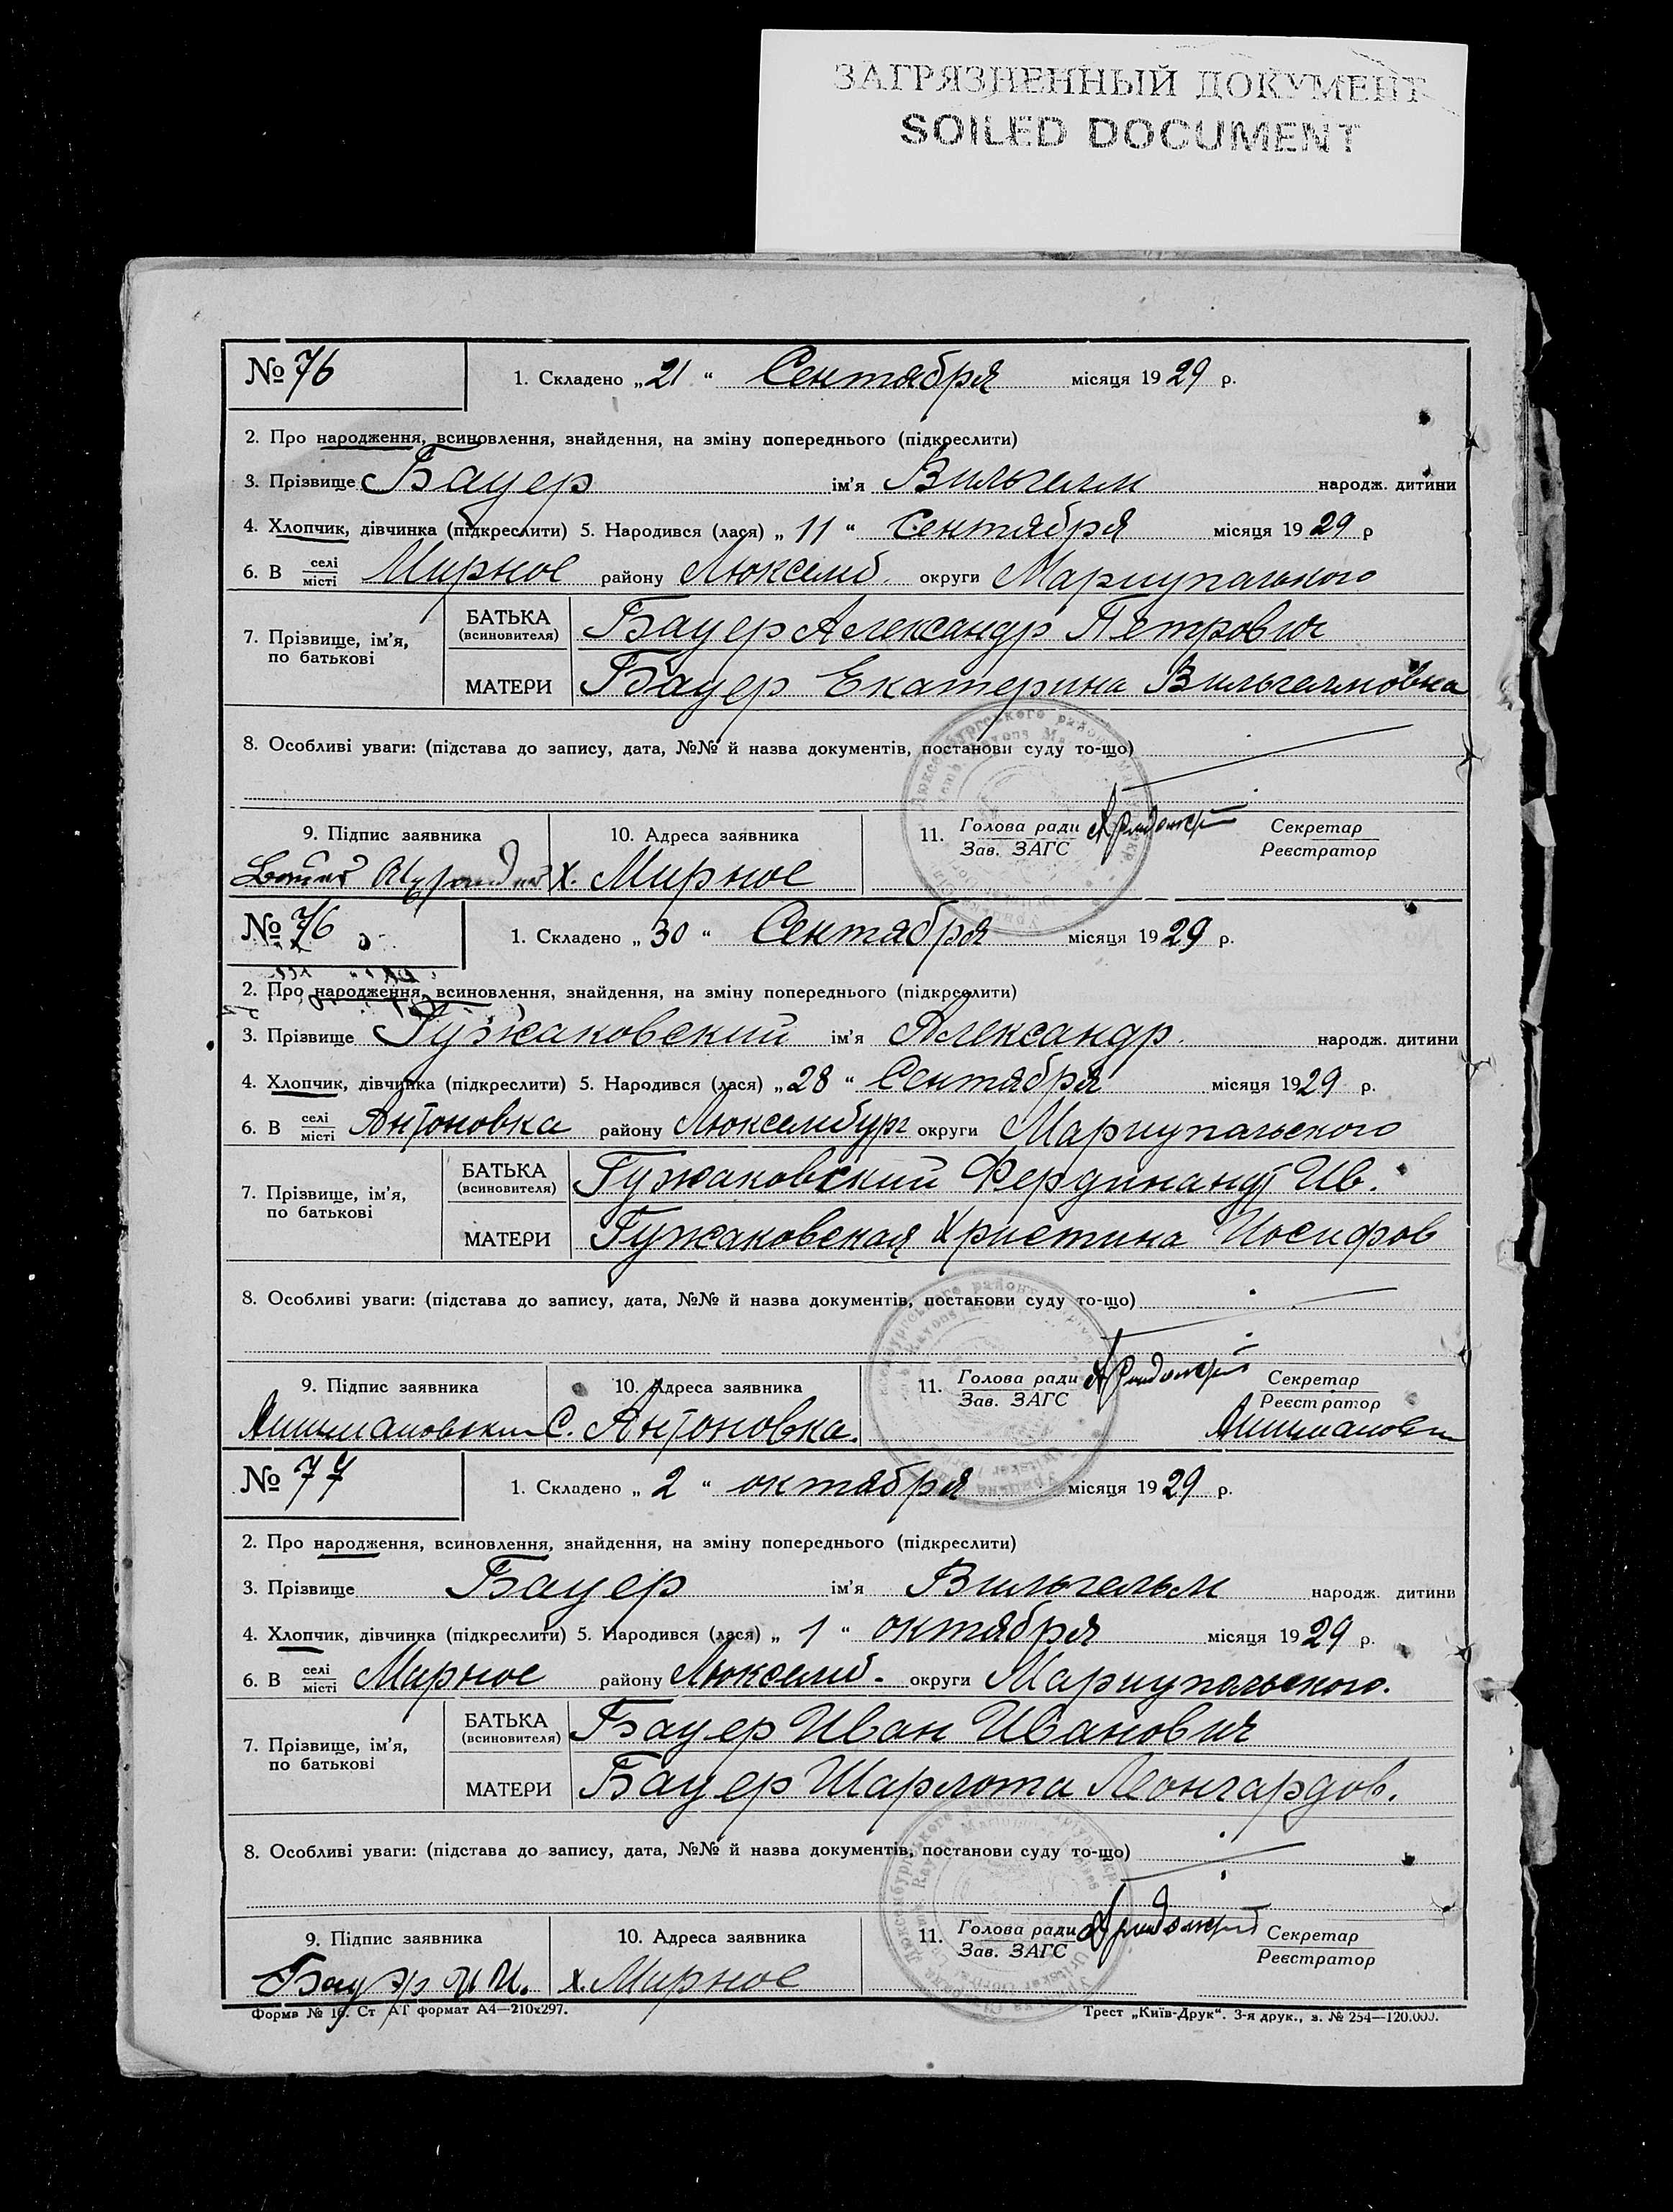 ЗАГРЯЗНЕННЫЙ ДОКУМЕНТ
SOILED DOCUMENT
№ 76
1. Складено „21“ Сентября місяця 1929 р.
2. Про народження, всиновлення, знайдення, на зміну попереднього (підкреслити)
3. Прізвище Бауер ім'я Вильгелм народж. дитини
4. Хлопчик, дівчинка (підкреслити) 5. Народився (лася) „11“ Сентября місяця 1929 р
6. В селі/місті Мирное району Люксемб. округи Мариупальского
7. Прізвище, ім'я, по батькові
БАТЬКА (всиновителя) Бауер Александр Петрович
МАТЕРИ Бауер Екатерина Вильгелмовна
8. Особливі уваги: (підстава до запису, дата, №№ й назва документів, постанови суду то-що)
9. Підпис заявника
10. Адреса заявника
11. Голова ради Секретар
Зав. ЗАГС Реєстратор
х. Мирное
№ 76
1. Складено „30“ Сентября місяця 1929 р.
2. Про народження, всиновлення, знайдення, на зміну попереднього (підкреслити)
3. Прізвище Гужаковский ім'я Александр народж. дитини
4. Хлопчик, дівчинка (підкреслити) 5. Народився (лася) „28“ Сентября місяця 1929 р.
6. В селі/місті Антоновка району Люксембург округи Мариупальского
7. Прізвище, ім'я, по батькові
БАТЬКА (всиновителя) Гужаковский Фердинанд Ив.
МАТЕРИ Гужаковская Христина Иосифов
8. Особливі уваги: (підстава до запису, дата, №№ й назва документів, постанови суду то-що)
9. Підпис заявника
10. Адреса заявника
11. Голова ради Секретар
Зав. ЗАГС Реєстратор
С. Антоновка.
№ 77
1. Складено „2“ октября місяця 1929 р.
2. Про народження, всиновлення, знайдення, на зміну попереднього (підкреслити)
3. Прізвище Бауер ім'я Вильгельм народж. дитини
4. Хлопчик, дівчинка (підкреслити) 5. Народився (лася) „1“ октября місяця 1929 р.
6. В селі/місті Мирное району Люксемб. округи Мариупальского.
7. Прізвище, ім'я, по батькові
БАТЬКА (всиновителя) Бауер Иван Иванович
МАТЕРИ Бауер Шарлота Леонгардов.
8. Особливі уваги: (підстава до запису, дата, №№ й назва документів, постанови суду то-що)
9. Підпис заявника
10. Адреса заявника
11. Голова ради Секретар
Зав. ЗАГС Реєстратор
Бауэр И И. х. Мирное
Форма № 16. Ст АТ формат А4—210х297.
Трест „Київ-Друк“. 3-я друк., з. № 254—120.000.